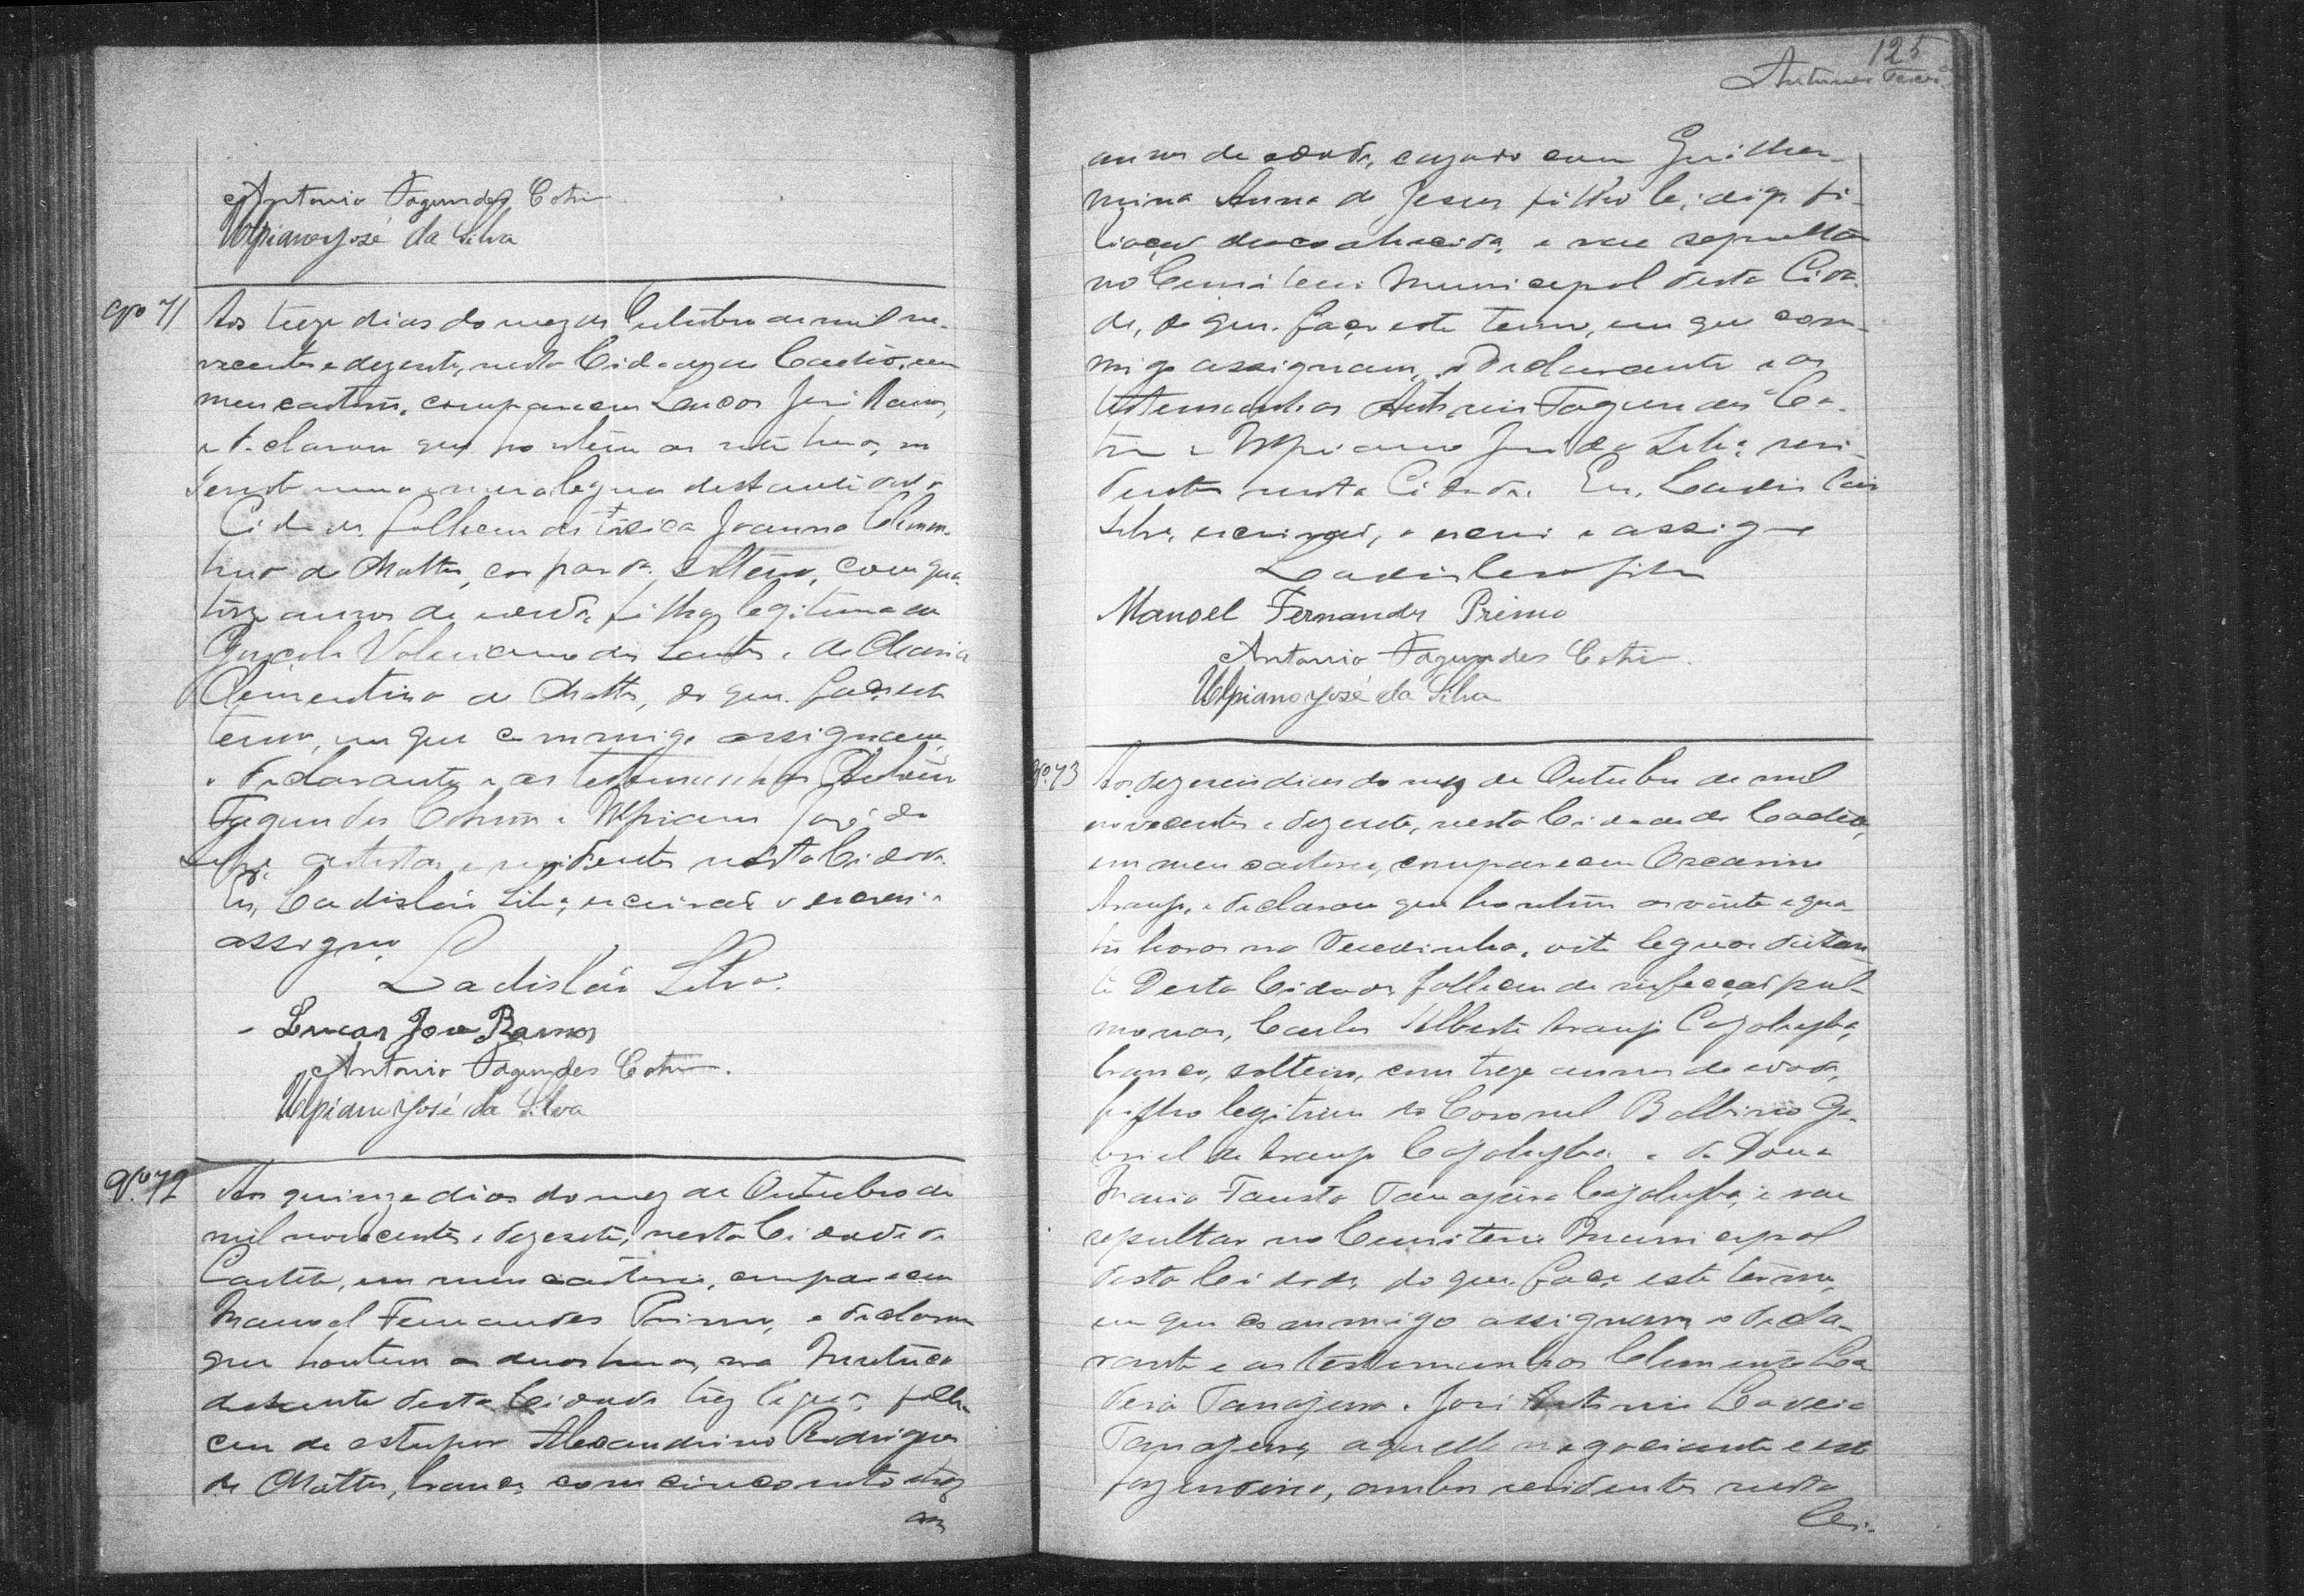 Antonio Fagundes Cotrim
Ulpiano José da Silva
Nº 71
Aos treze dias do mez de Outubro de mil no-
vecentos e dezesete, nesta Cidade de Caetité, em
meu cartorio, compareceu Lucas José Ramos,
e declarou que hontem as sete horas, no
uma e meia legua distante desta
Cidade, falleceu de Joanna Clemen-
tina de Mattos, côr parda, solteira, com qua-
torze annos de edade, filha legitima de
Valeriano dos Santos e de Maria
Clementina de Mattos, do que faço este
termo, em que commigo assignam
o declarante e as testemunhas Antonio
Fagundes Cotrim e Ulpiano José da
Silva, artistas, e residentes nesta Cidade.
Eu, Ladisláu Silva, escrivão o escrevi e
assigno.
Ladisláu Silva.
Lucas Jose Ramos
Antonio Fagundes Cotrim.
Ulpiano José da Silva
Nº 72
Aos quinze dias do mez de Outubro de
mil novecentos e dezesete, nesta Cidade de
Caetité, em meu cartorio, compareceu
Manoel Fernandes Primo, e declarou
que hontem as duas horas, na
distante desta Cidade trez leguas, falle-
ceu de estupor Alexandrino Rodrigues
de Mattos, branco, com cincoenta e trez
an
125
Antunes
annos de edade, cazado com Guilher-
mina Anna de Jesus, filho le, digo, fi-
liação desconhecida, e vae sepultar
no Cemiterio Municipal desta Cida-
de, do que faço este termo, em que com-
migo assignam, o declarante e as
testemunhas Antonio Fagundes Co-
trim e Ulpiano José da Silva, resi-
dentes nesta Cidade. Eu, Ladisláu
Silva, escrivão, o escrevi e assigno
Ladisláu Silva
Manoel Fernandes Primo
Antonio Fagundes Cotrim.
Ulpiano José da Silva
Nº 73
Aos dezeseis dias do mez de Outubro de mil
novecentos e dezesete, nesta Cidade de Caetité,
em meu cartorio, compareceu Oscarino
Araujo, e declarou que hontem as vinte e qua-
tro horas na oito leguas distan-
te desta Cidade, falleceu de infecção pul-
monar, Carlos Alberto Araujo Cajahyba,
branco, solteiro, com treze annos de edade,
filho legitimo do Coronel Balbino Ga-
briel de Araujo Cajahyba e de Dona
Maria Fausta Tanajura Cajahyba, e vae
sepultar no Cemiterio Municipal
desta Cidade, do que faço este termo,
em que commigo assignam o decla-
rante e as testemunhas Clemente La-
deia Tanajura e José Antonio Ladeia
Tanajura, aquelle negociante e este
fazendeiro, ambos residentes nesta
Ci-